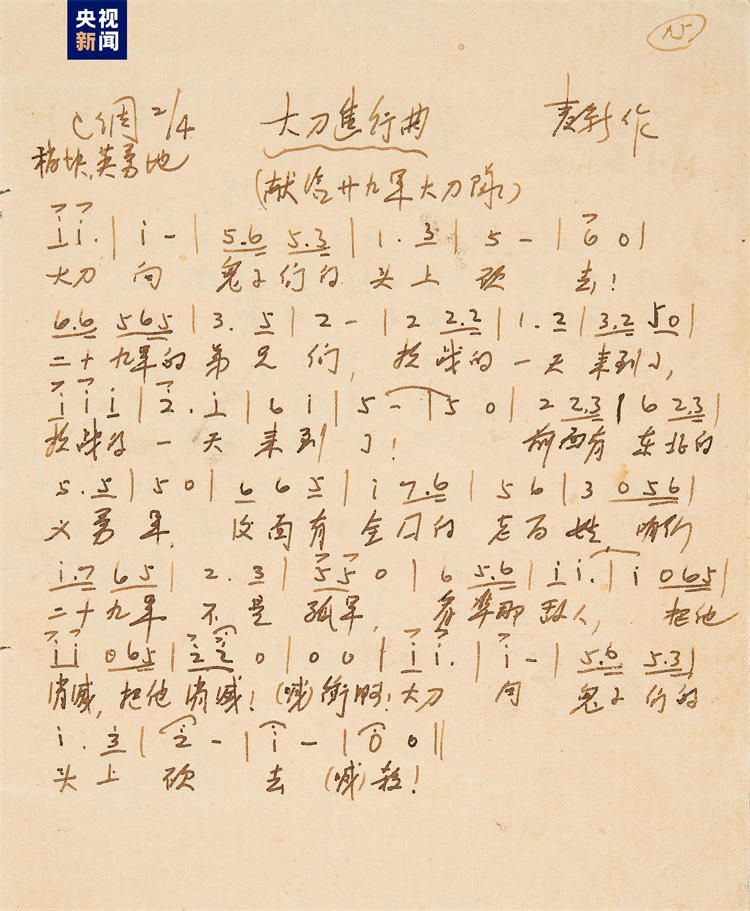 央视
新闻
15
C调 2/4 大刀進行曲 麦新作
稍快、英勇地
(献给廿九军大刀隊)
i i. | i - | 5.6 5.3 | 1. 3 | 5 - | 6 0 |
大刀 向 鬼子们的 头上 砍 去!
6.6 565 | 3. 5 | 2 - | 2 2.2 | 1. 2 | 3.2 50 |
二十九军的弟兄们, 抗战的一天来到了,
i i i | 2. i | 6 i | 5 - | 5 0 | 2 2.3 | 6 2.3 |
抗战的一天来到了! 前面有东北的
5. 5 | 5 0 | 6 6 5 | i 7.6 | 5 6 | 3 0 56 |
义勇军, 后面有全国的老百姓, 咱们
i.7 65 | 2. 3 | 5 5 0 | 6 5.6 | i i. | i 065 |
二十九军不是孤军, 看準那敌人, 把他
i i 065 | 2 2 0 | 0 0 | i i. | i - | 5.6 5.3 |
消滅, 把他消滅! (喊)衝啊! 大刀 向 鬼子们的
i. 3 | 2 - | i - | 0 0 ||
头上 砍 去 (喊)殺!